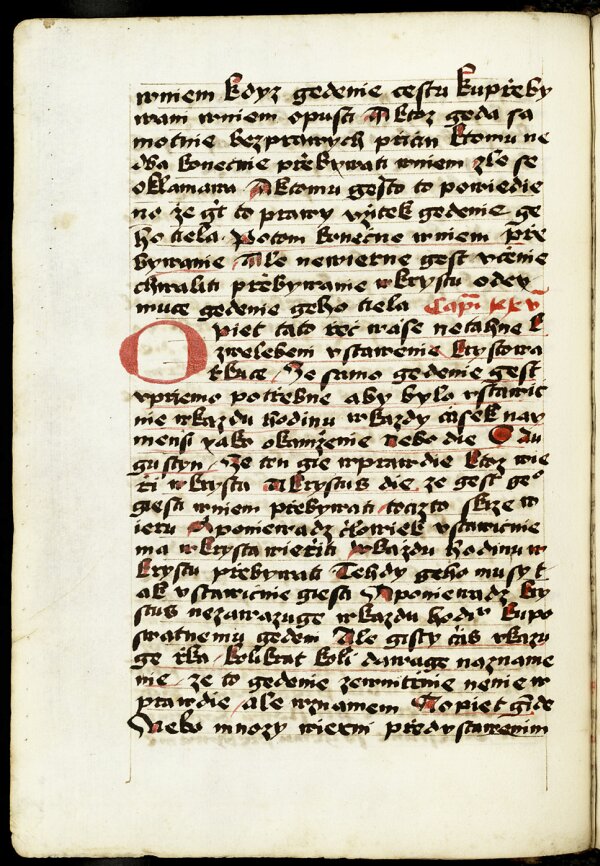 wniem kdyz gedenie cestu kupřeby
wani wniem opusti A ktoz geda sa
motnie bezprawych přičin ktomu ne
dba konečnie přebywati wniem zle se
oklamawa Aktomu gesto to powiedie
no že gt to prawy vžitek gedenie ge
ho tiela potom konečne wniem pře
bywanie Ale newierne gest včenie
chwaliti přebywanie wkrystu odey
muce gedenie geho tiela Capi xxv
Opiet tato řeč wase netahne k
zwelebem vstawenie krystowa
řkuce Ze samo gedenie gest
vpriemo potřebne aby bylo vstawic
nie wkazdu hodinu wkazdy časek nay
mensi yako okamženie Nebo die S Au
gustyn Ze ten gie wprawdie ktoz wie
ři wkrysta A krystus die ze gest geo
giesti wniem přebywati toczto skrze w
ieru A poniewadz člowiek vstawicnie
ma wkrysta wieřiti wkazdu hodinu w
krystu přebywati Tehdy geho musy t
ak vstawicnie giesti A poniewadz kry
stus nezawazuge wkazdu hodiu kupo
swatnemu gedeni Ale gisty čas vkazu
ge řka kolikrat koli dawage nazname
nie ze to gedenie zewnitrnie nenie w
prawdie ale wznameni To opiet gide
Nebo mnozy wierni předvstawenim